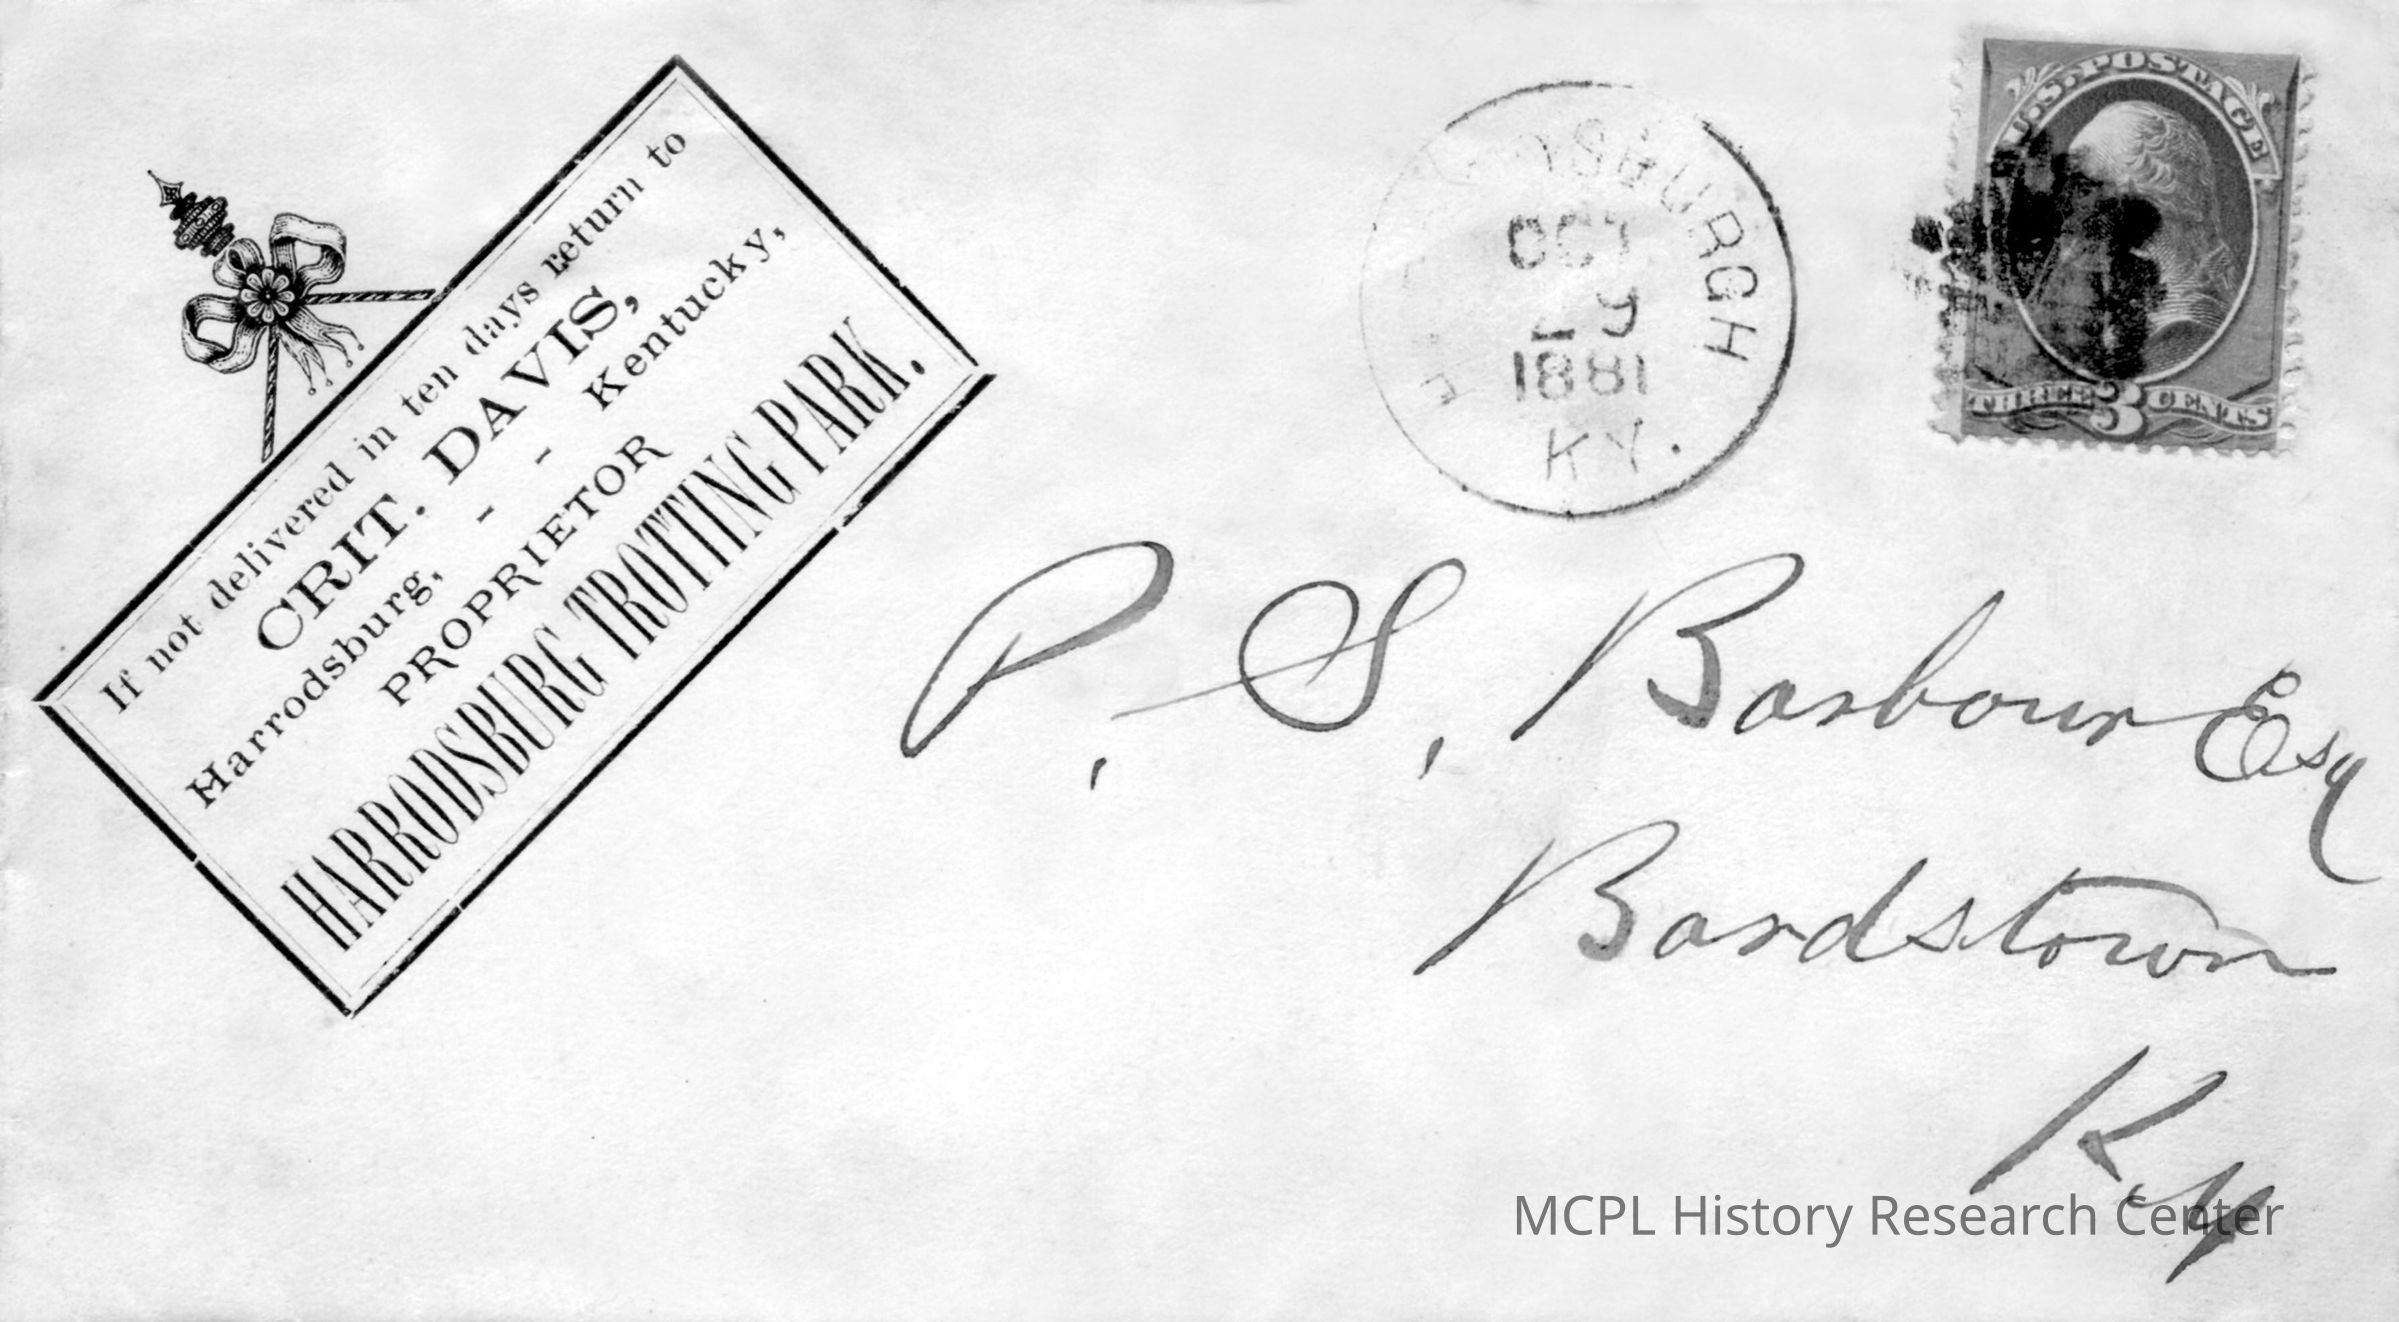 If not delivered in ten days return to
CRIT. DAVIS,
Harrodsburg, - - Kentucky,
PROPRIETOR
HARRODSBURG TROTTING PARK.
OCT
1881
KY.
U.S. POSTAGE
THREE 3 CENTS
P. S. Barbour Esq
Bardstown
Ky
MCPL History Research Center